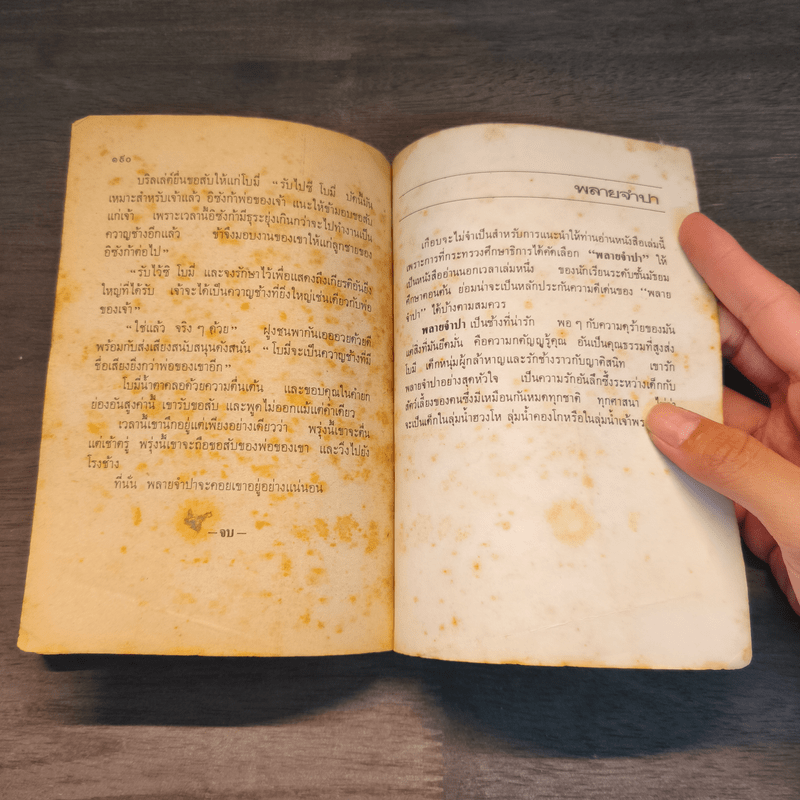 ๑๕๐
บริลเล่ต์ยื่นขอสับให้แก่โบมี่ “รับไปซี โบมี่ บัดนี้มัน
เหมาะสำหรับเจ้าแล้ว อิซังก้าพ่อของเจ้า แนะให้ข้ามอบขอสับ
แก่เจ้า เพราะเวลานี้อิซังก้ามีธุระยุ่งเกินกว่าจะไปทำงานเป็น
ควาญช้างอีกแล้ว ข้าจึงมอบงานของเขาให้แก่ลูกชายของ
อิซังก้าต่อไป”
“รับไว้ซิ โบมี่ และจงรักษาไว้เพื่อแสดงถึงเกียรติอันยิ่ง
ใหญ่ที่ได้รับ เจ้าจะได้เป็นควาญช้างที่ยิ่งใหญ่เช่นเดียวกับพ่อ
ของเจ้า”
“ใช่แล้ว จริง ๆ ด้วย” ฝูงชนพากันเออออวยด้วยดี
พร้อมกับส่งเสียงสนับสนุนดังสนั่น “โบมี่จะเป็นควาญช้างที่มี
ชื่อเสียงยิ่งกว่าพ่อของเขาอีก”
โบมี่น้ำตาคลอด้วยความตื่นเต้น และขอบคุณในคำยก
ย่องอันสูงค่านี้ เขารับขอสับ และพูดไม่ออกแม้แต่คำเดียว
เวลานี้เขานึกอยู่แต่เพียงอย่างเดียวว่า พรุ่งนี้เขาจะตื่น
แต่เช้าตรู่ พรุ่งนี้เขาจะถือขอสับของพ่อของเขา และวิ่งไปยัง
โรงช้าง
ที่นั่น พลายจำปาจะคอยเขาอยู่อย่างแน่นอน
— จบ —
พลายจำปา
เกือบจะไม่จำเป็นสำหรับการแนะนำให้ท่านอ่านหนังสือเล่มนี้
เพราะการที่กระทรวงศึกษาธิการได้คัดเลือก “พลายจำปา” ให้
เป็นหนังสืออ่านนอกเวลาเล่มหนึ่ง ของนักเรียนระดับชั้นมัธยม
ศึกษาตอนต้น ย่อมน่าจะเป็นหลักประกันความดีเด่นของ “พลาย
จำปา” ได้บ้างตามสมควร
พลายจำปา เป็นช้างที่น่ารัก พอ ๆ กับความดุร้ายของมัน
แต่สิ่งที่มันยึดมั่น คือความกตัญญูรู้คุณ อันเป็นคุณธรรมที่สูงส่ง
โบมี่ เด็กหนุ่มผู้กล้าหาญและรักช้างราวกับญาติสนิท เขารัก
พลายจำปาอย่างสุดหัวใจ เป็นความรักอันลึกซึ้งระหว่างเด็กกับ
สัตว์เลี้ยงของคนซึ่งมีเหมือนกันหมดทุกชาติ ทุกศาสนา
จะเป็นเด็กในลุ่มน้ำฮวงโห ลุ่มน้ำคองโกหรือในลุ่มน้ำเจ้าพร